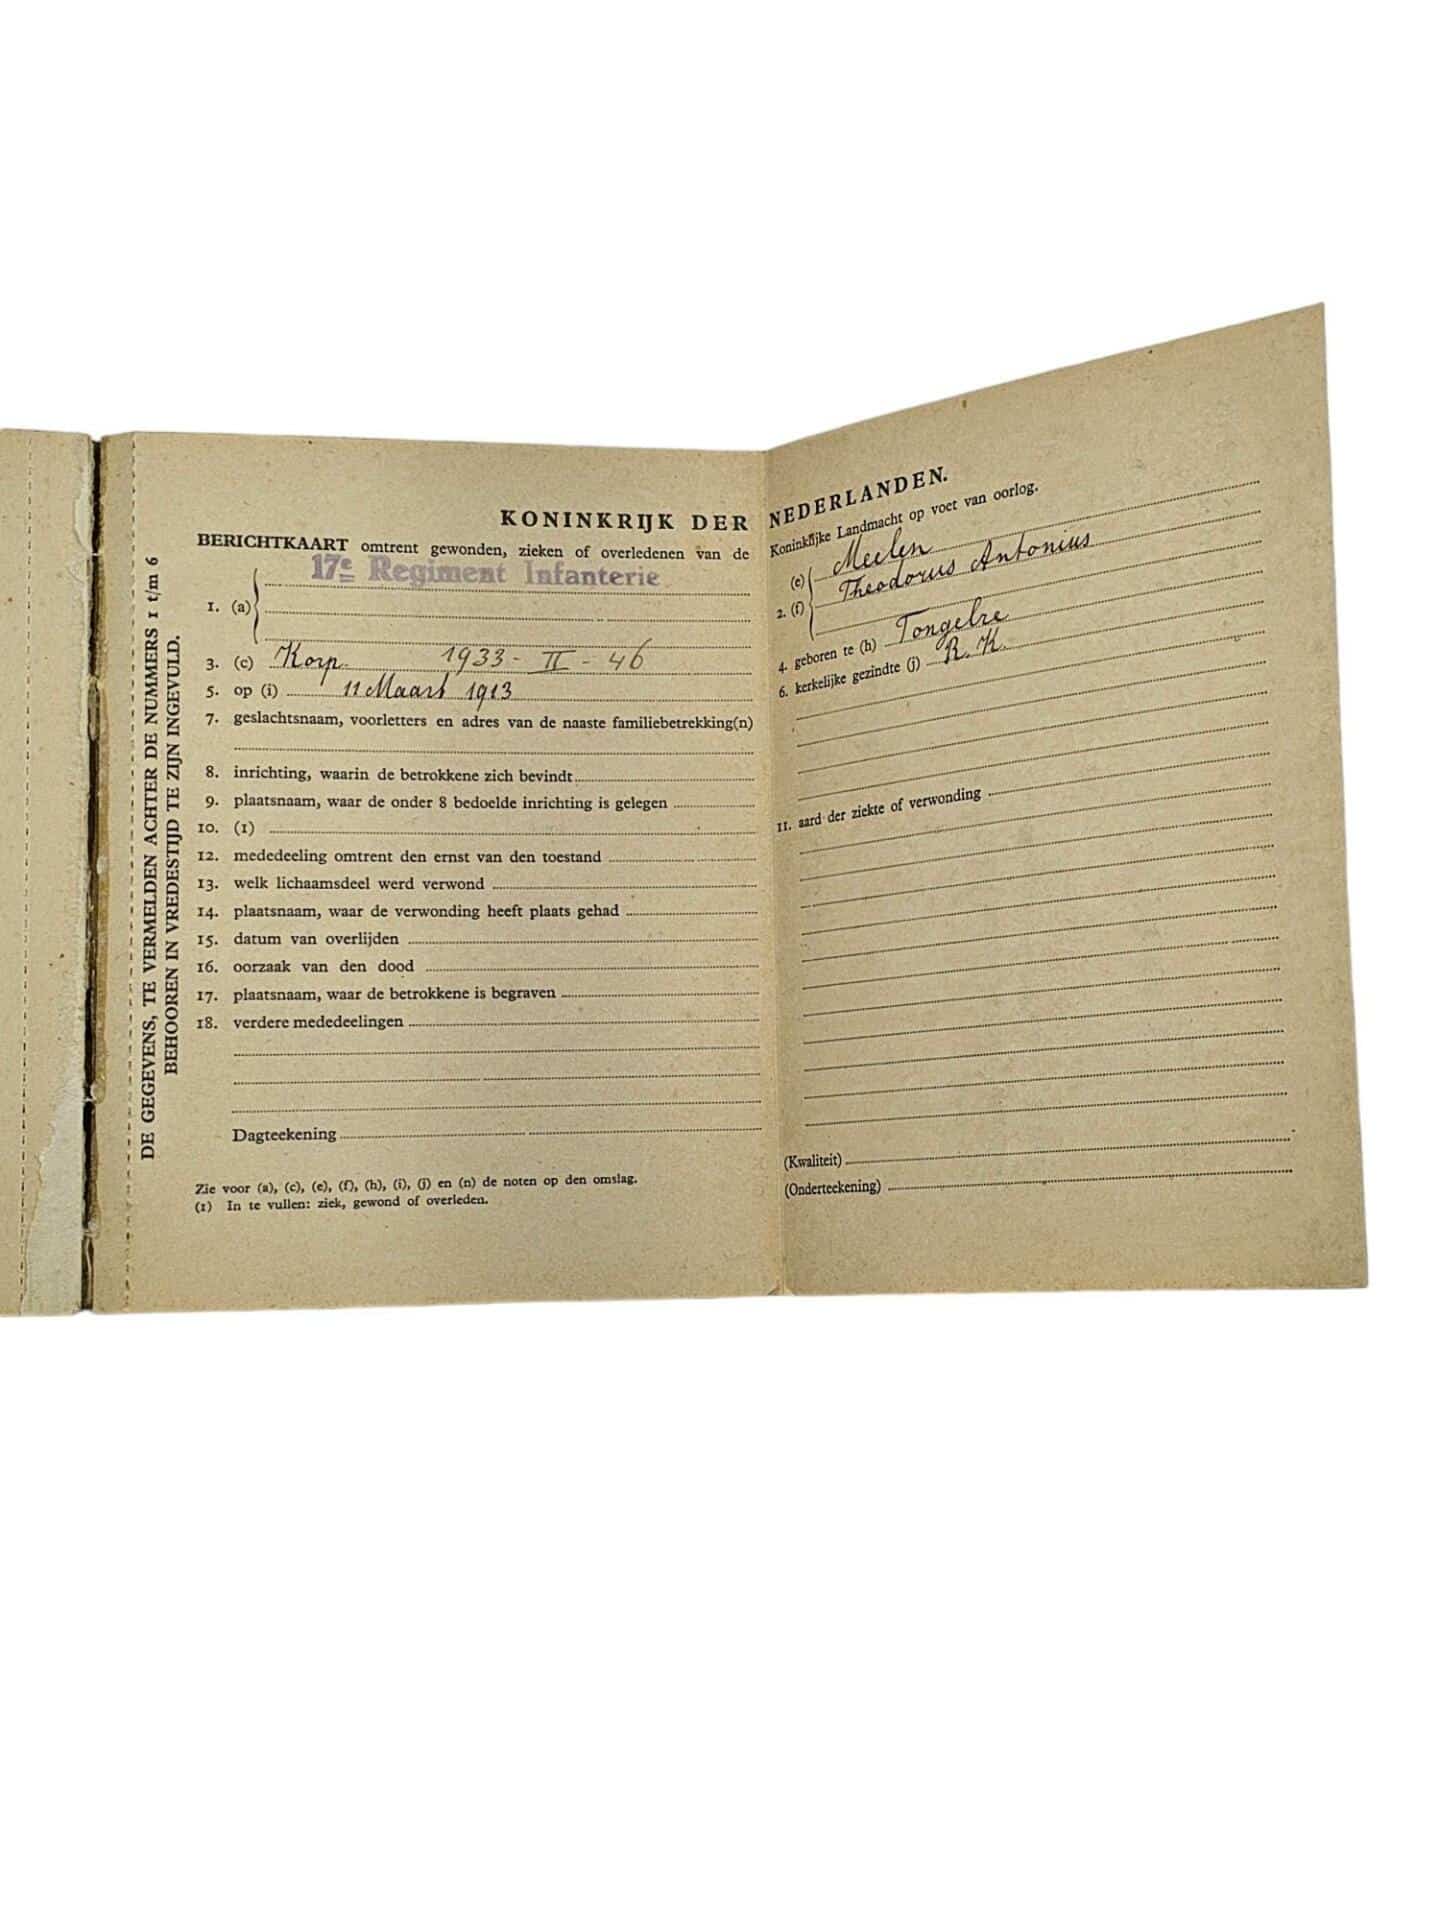 DE GEGEVENS, TE VERMELDEN ACHTER DE NUMMERS 1 t/m 6
BEHOOREN IN VREDESTIJD TE ZIJN INGEVULD.
KONINKRIJK DER NEDERLANDEN.
BERICHTKAART omtrent gewonden, zieken of overledenen van de Koninklijke Landmacht op voet van oorlog.
17e Regiment Infanterie
1. (a)
(e) Meelen
2. (f) Theodorus Antonius
3. (c) Korp. 1933 - II - 46
4. geboren te (h) Tongelre
5. op (i) 11 Maart 1913
6. kerkelijke gezindte (j) R. K.
7. geslachtsnaam, voorletters en adres van de naaste familiebetrekking(n)
8. inrichting, waarin de betrokkene zich bevindt
9. plaatsnaam, waar de onder 8 bedoelde inrichting is gelegen
10. (1)
11. aard der ziekte of verwonding
12. mededeeling omtrent den ernst van den toestand
13. welk lichaamsdeel werd verwond
14. plaatsnaam, waar de verwonding heeft plaats gehad
15. datum van overlijden
16. oorzaak van den dood
17. plaatsnaam, waar de betrokkene is begraven
18. verdere mededeelingen
Dagteekening
(Kwaliteit)
(Onderteekening)
Zie voor (a), (c), (e), (f), (h), (i), (j) en (n) de noten op den omslag.
(1) In te vullen: ziek, gewond of overleden.